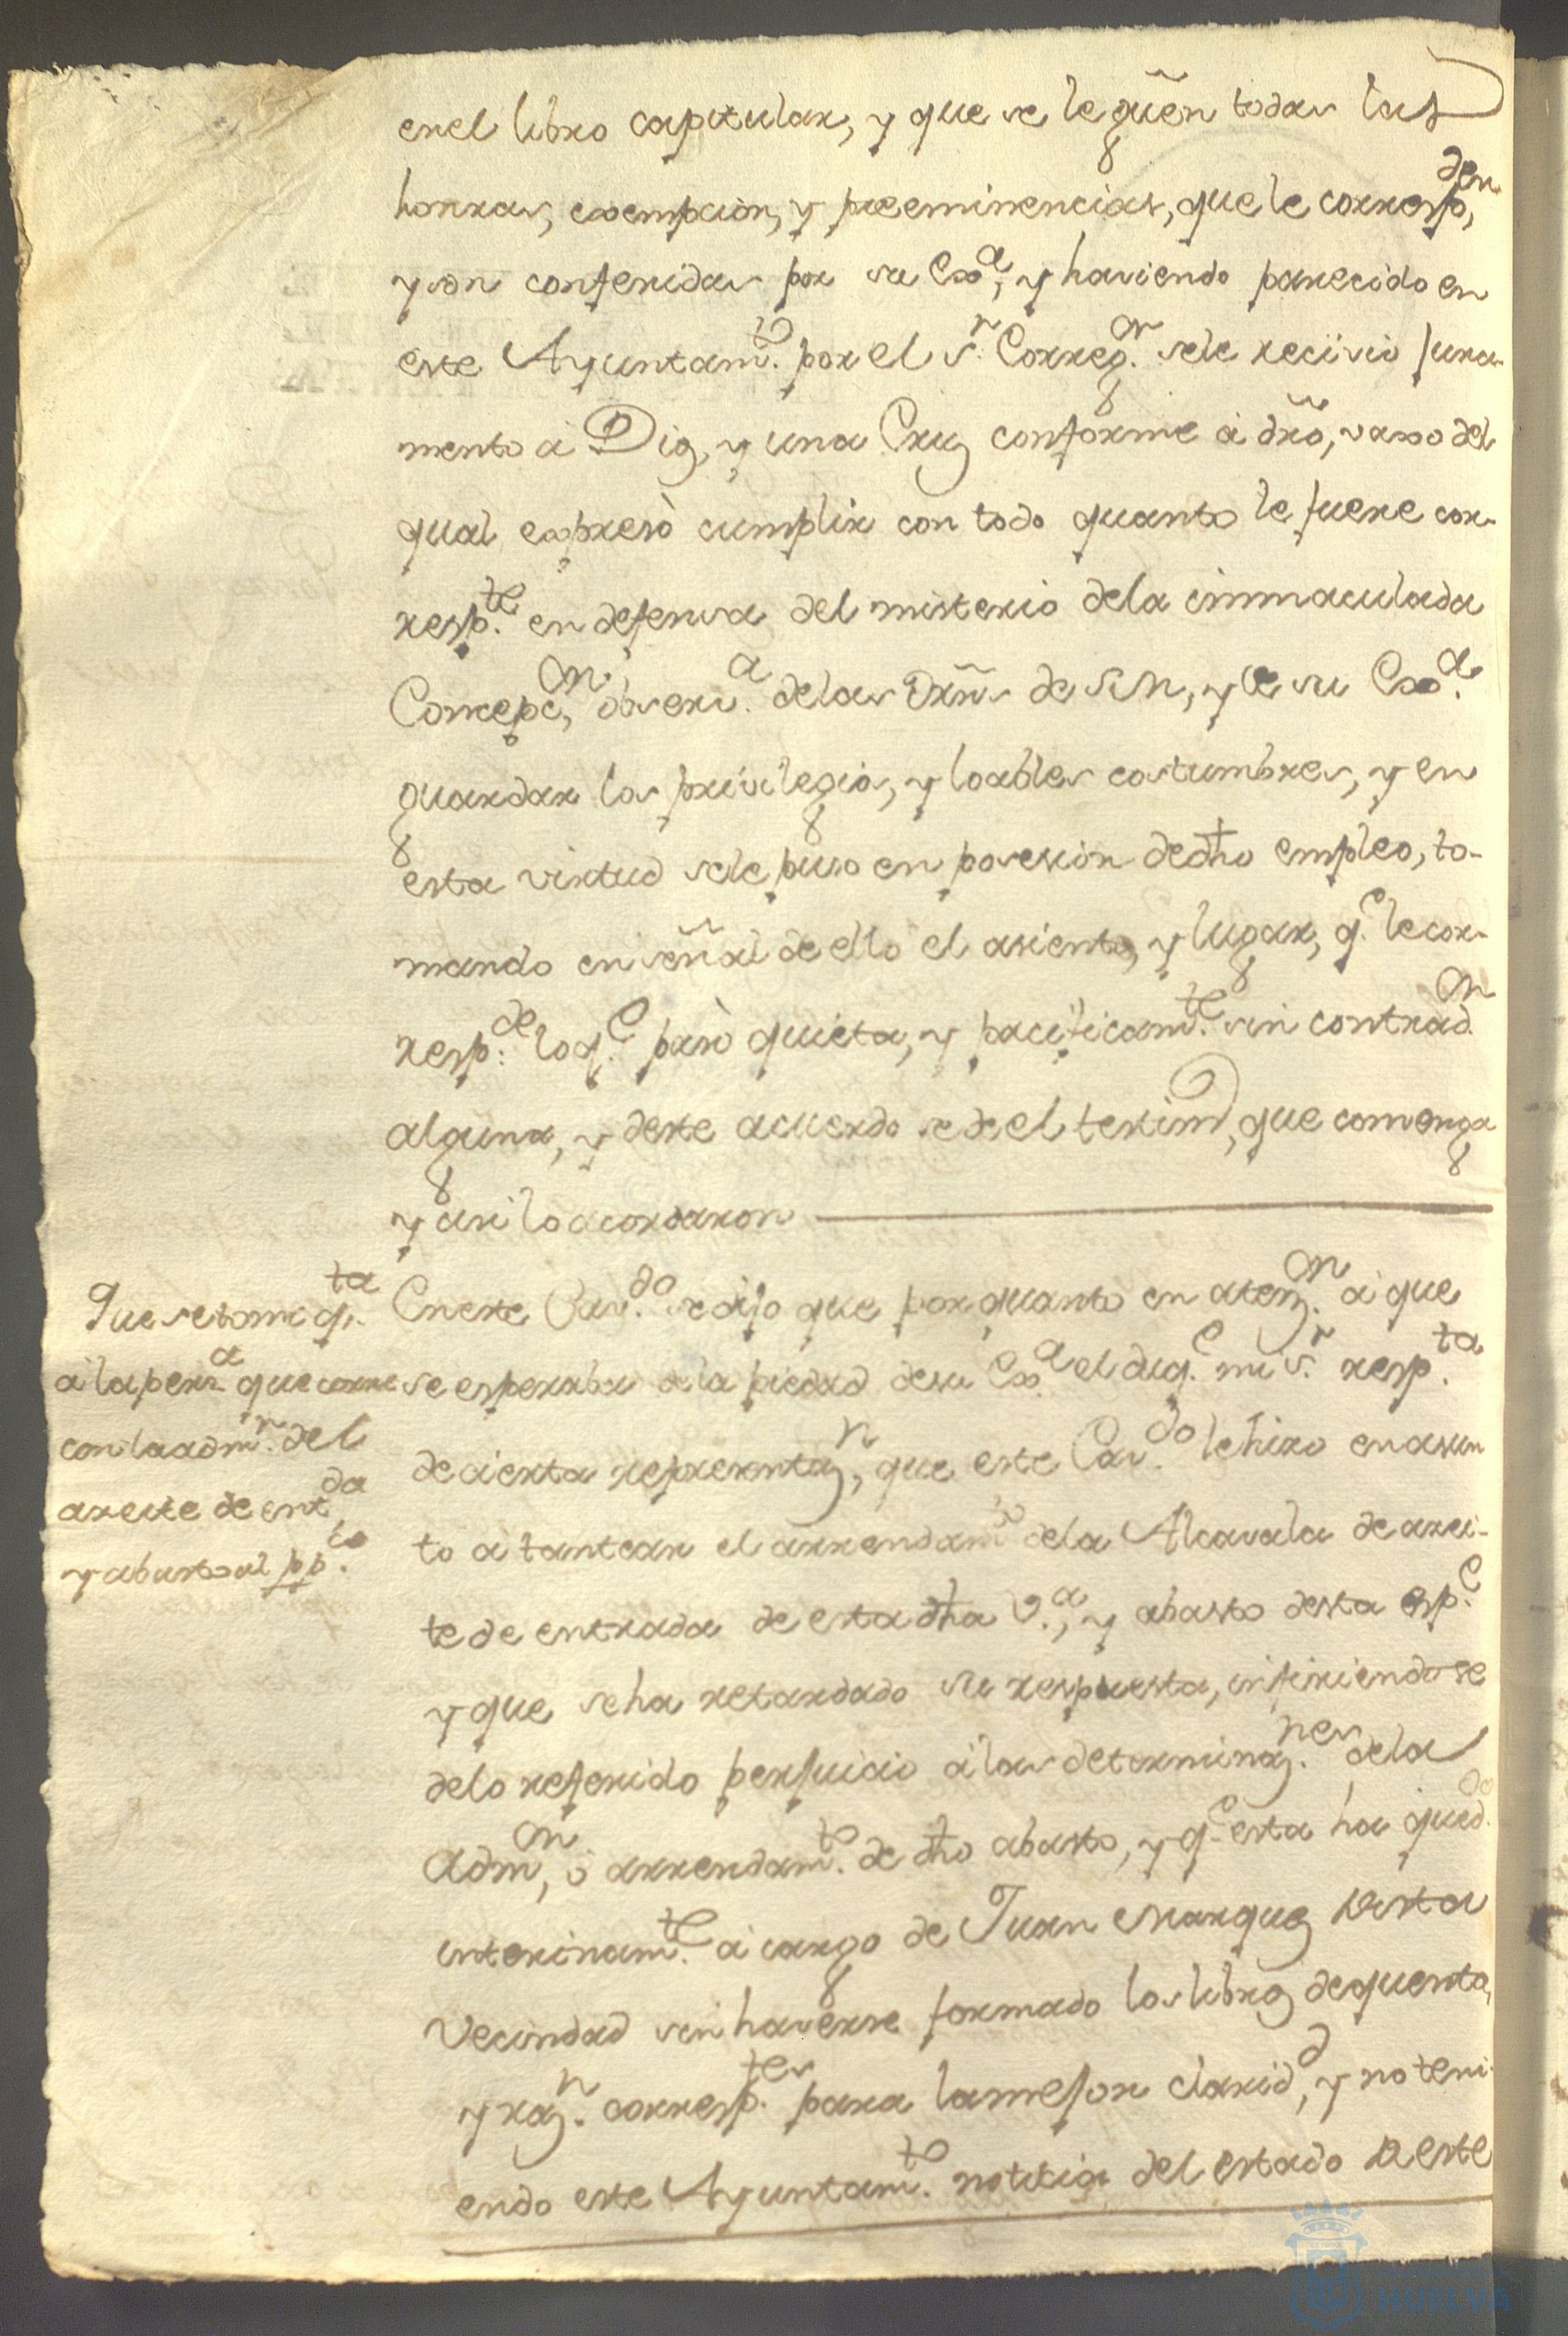 en el libro capitular, y que se le guên todas las
honras, exempcion, y preeminencias, que le corresp.den
y son conferidas por su Exa, y haviendo parecido en
este Ayuntam.to por el s.r Correg.or se le recivio jura-
mento â Dios, y una Cruz conforme â dro, vaxo del
qual expresò cumplir con todo quanto le fuere cor-
resp.te en defensa del misterio dela immaculada
Concepc.on, observ.a delas Orns de S.M, y de su Ex.a
guardar los privilegios, y loables costumbres, y en
esta virtud sele puso en posesion de dho empleo, to-
mando en señal de ello el asiento, y lugar, q.e le cor-
resp.de lo q.e pasò quieta, y pacificam.te sin contrad.on
alguna, y deste acuerdo se dè el testim.o, que comvenga
y asi lo acordaron
Que se tome q.ta
â la pers.a que corre
con la adm.n del
aseite de ent.da
y abasto al pp.co
En este Cav.do se dijo que por quanto en atenz.on â que
se esperaba de la piedad desu Ex.a el duq.e mi s.r resp.ta
de cierta representaz.n, que este Cav.do le hizo en asun
to a tantear el arrendam.to dela Alcavala de azei-
te de entrada de esta dha V.a, y abasto desta esp.e
y que se ha retardado su respuesta, infiriendose
delo referido perjuicio â las determinaz.nes dela
Adm.on, ô arrendam.to de dho abasto, y q.e esta ha qued.do
interinam.te â cargo de Juan Marquez desta
Vecindad sin haverse formado los libros de quenta,
y raz.n corresp.tes para la mejor clarid.d, y no teni-
endo este Ayuntam.to noticia del estado de este
HUELVA